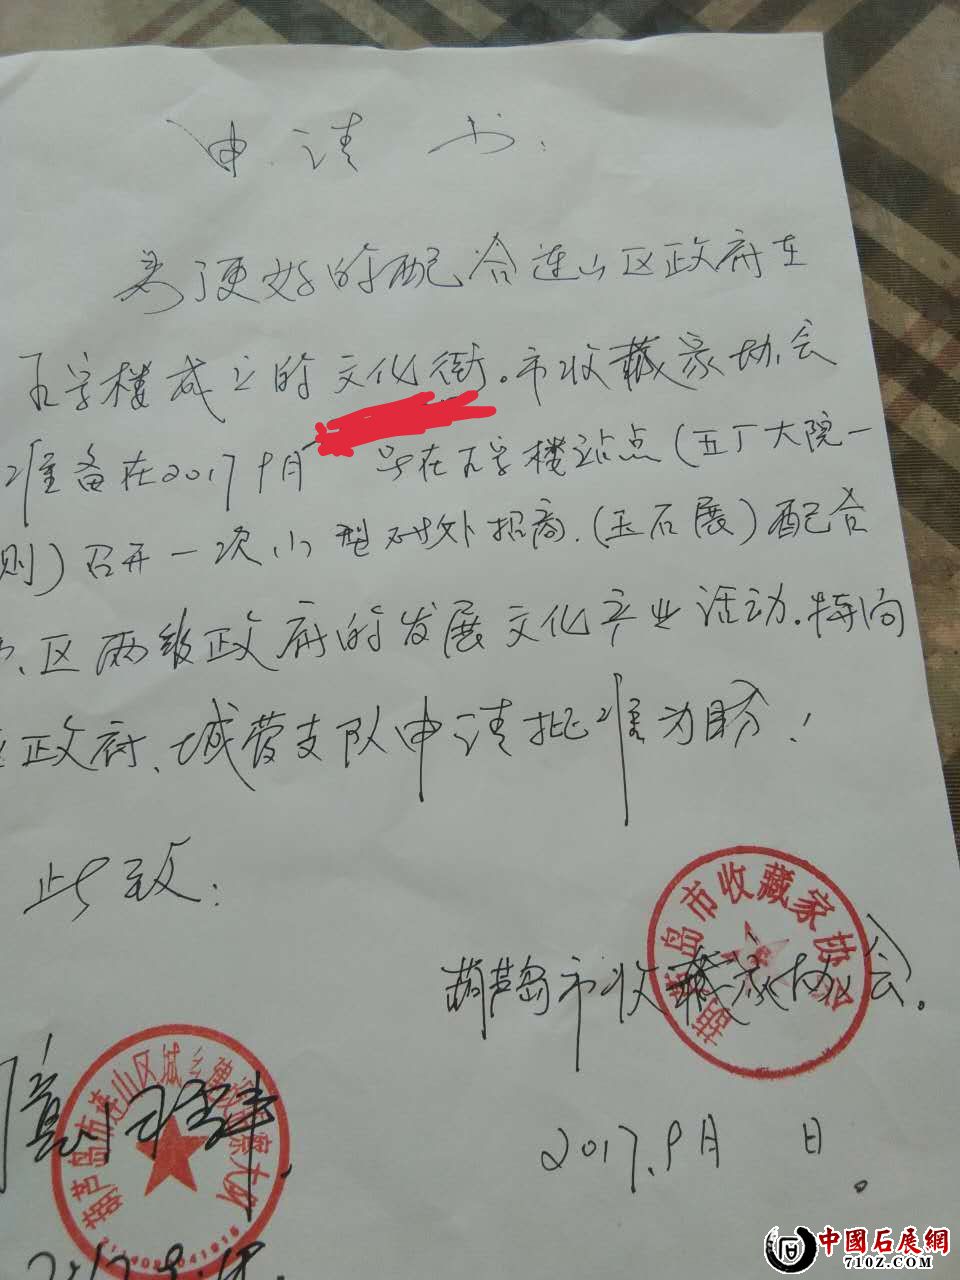 申请书:
为了更好的配合连山区政府在
石字楼成立的文化街。市收藏家协会
准备在2017 9月 号在石字楼站点(五丁大院一
则)召开一次小型对外招商.(玉石展)配合
区两级政府的发展文化产业活动.特向
政府、城管支队申请批准为盼!
此致:
葫芦岛市收藏家协会
葫芦岛市收藏家协会.
葫芦岛市连山区城乡建设
2017.9月 日。
中國石展網
710Z.COM